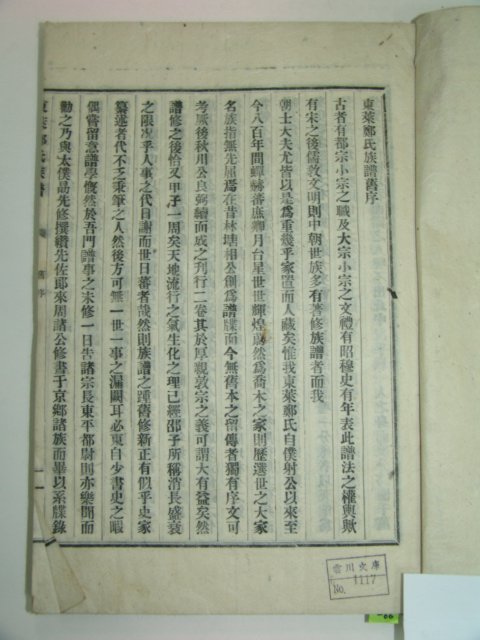 東萊鄭氏族譜舊序
古者有都宗小宗之職及大宗小宗之文禮有昭穆史有年表此譜法之權輿歟
有宋之後儒敎文明則中朝世族多有著修族譜者而我
朝士大夫尤皆以是爲重幾乎家置而人藏矣惟我東萊鄭氏自僕射公以來至
今八百年間蟬赫蕃庶卿月台星世世輝煌蔚然爲喬木之家則歷選世之大家
名族指無先屈焉在昔林塘相公創爲譜牒而今無舊本之留傳者獨有序文可
考厥後秋川公良弼續而成之刊行二卷其於厚親敦宗之義可謂大有益矣然
譜修之後恰又甲子一周矣天地流行之氣生化之理已經邵子所稱消長盛衰
之限况乎人事之代目謝而世日蕃者哉然則族譜之踵舊修新正有似乎史家
纂述者代不乏秉筆之人然後方可無一世一事之漏闕耳必東自少書史之暇
偶嘗留意譜學慨然於吾門譜事之未修一日告諸宗長東平都尉則亦樂聞而
勖之乃與太僕最先修撰纘先佐郞來周諸公修書于京鄕諸族而畢以系牒錄
東萊鄭氏族譜
舊序
一
雲川文庫
No. 1117